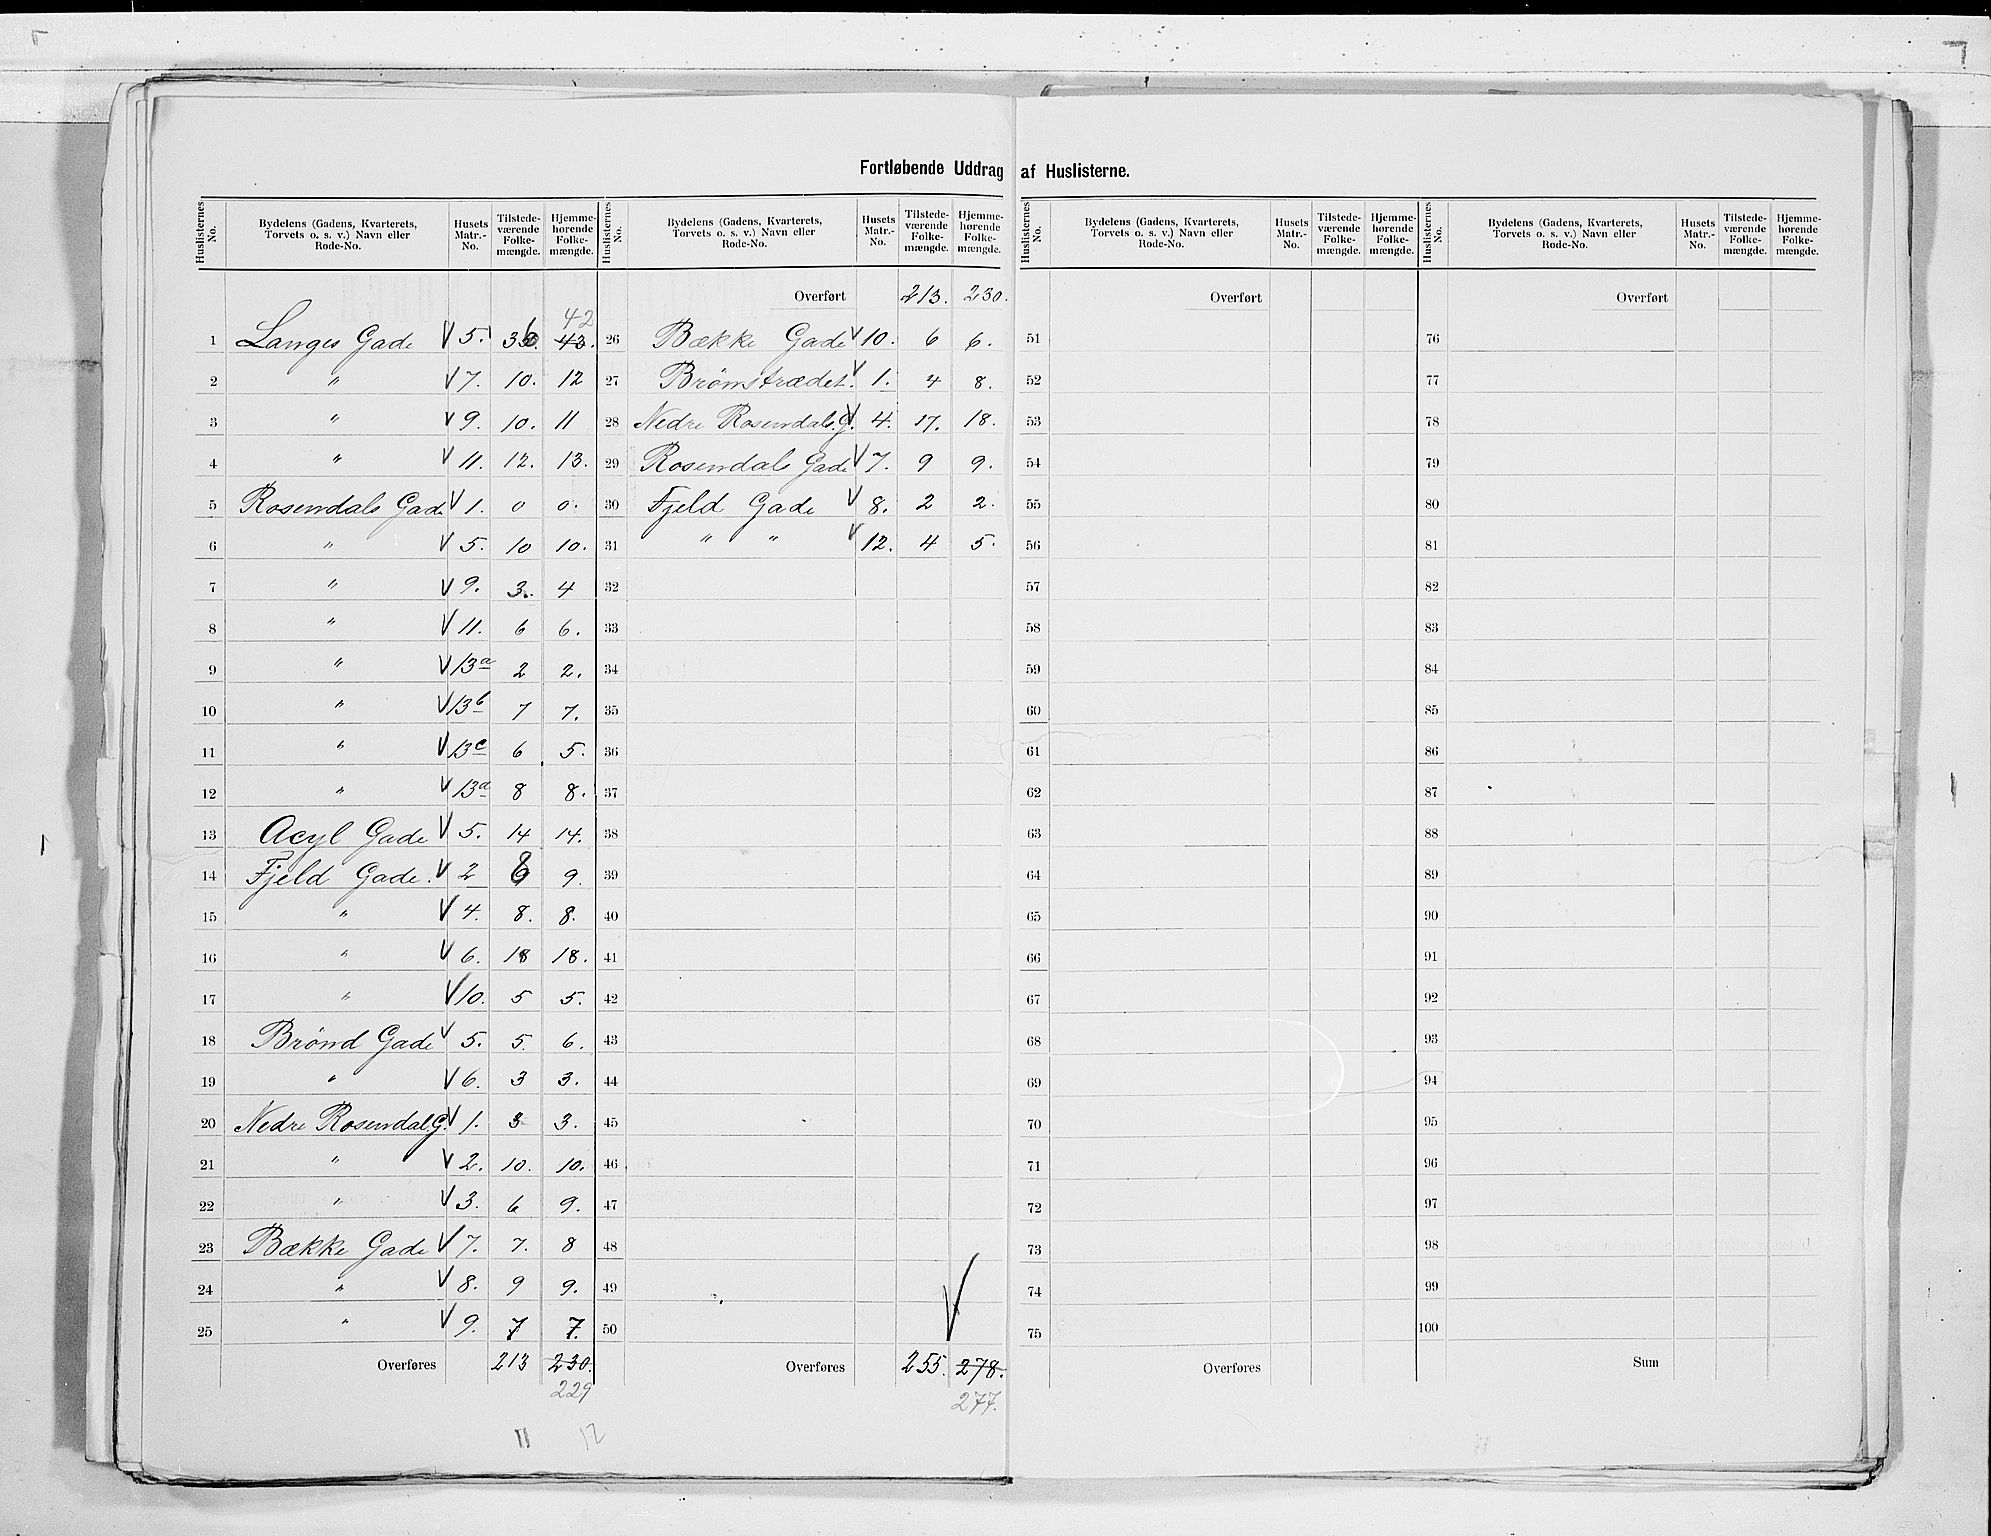 Fortløbende Uddrag af Huslisterne.
Huslisternes No. | Bydelens (Gadens, Kvarterets, Torvets o. s. v.) Navn eller Rode-No. | Husets Matr.-No. | Tilstedeværende Folkemængde. | Hjemmehørende Folkemængde.
1 Langes Gade V 5. 36. 43. 42
2 " V 7. 10. 12
3 " V 9. 10. 11
4 " V 11. 12. 13.
5 Rosendals Gade V 1. 0 0.
6 " V 5. 10 10.
7 " V 9. 3. 4
8 " V 11. 6 6.
9 " V 13a 2 2.
10 " V 13b 7 7.
11 " V 13c 6 5.
12 " V 13d 8 8.
13 Acyl Gade V 5. 14 14.
14 Fjeld Gade. V 2 8 9.
15 " V 4. 8. 8.
16 " V 6. 18 18.
17 " V 10. 5 5.
18 Brönd Gade V 5. 5. 6.
19 " V 6. 3 3.
20 Nedre Rosendal.G. V 1. 3 3.
21 " V 2. 10. 10.
22 " V 3. 6 9.
23 Bække Gade V 7. 7. 8
24 " V 8. 9 9.
25 " V 9. 7 7.
Overføres 213 230.
229
11 12
Huslisternes No. | Bydelens (Gadens, Kvarterets, Torvets o. s. v.) Navn eller Rode-No. | Husets Matr.-No. | Tilstedeværende Folkemængde. | Hjemmehørende Folkemængde.
Overført 213. 230.
26 Bække Gade V 10. 6 6.
27 Brömstrædet. V 1. 4 8.
28 Nedre Rosendals.G. V 4. 17. 18.
29 Rosendals Gade V 7. 9 9.
30 Fjeld Gade V 8. 2 2.
31 " " V 12. 4 5.
32
33
34
35
36
37
38
39
40
41
42
43
44
45
46
47
48
49
50
V
Overføres 255. 278.
277.
Huslisternes No. | Bydelens (Gadens, Kvarterets, Torvets o. s. v.) Navn eller Rode-No. | Husets Matr.-No. | Tilstedeværende Folkemængde. | Hjemmehørende Folkemængde.
Overført
51
52
53
54
55
56
57
58
59
60
61
62
63
64
65
66
67
68
69
70
71
72
73
74
75
Overføres
Huslisternes No. | Bydelens (Gadens, Kvarterets, Torvets o. s. v.) Navn eller Rode-No. | Husets Matr.-No. | Tilstedeværende Folkemængde. | Hjemmehørende Folkemængde.
Overført
76
77
78
79
80
81
82
83
84
85
86
87
88
89
90
91
92
93
94
95
96
97
98
99
100
Sum